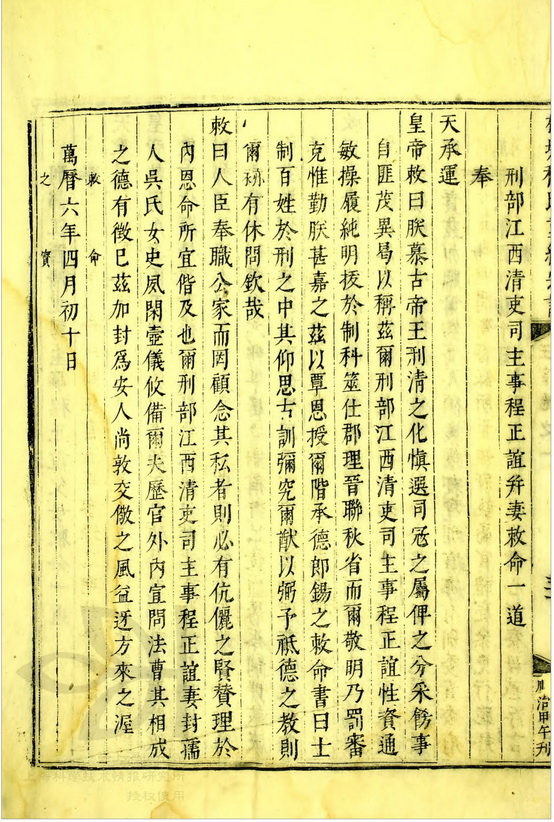 刑部江西清吏司主事程正誼并妻敕命一道
奉
天承運
皇帝敕曰朕慕古帝王刑清之化慎選司寇之屬俾之分采飭事
自匪茂異曷以稱茲爾刑部江西清吏司主事程正誼性資通
敏操履純明拔於制科筮仕郡理晉聯秋省而爾敬明乃罰審
克惟勤朕甚嘉之茲以覃恩授爾階承德郎錫之敕命書曰士
制百姓於刑之中其仰思古訓彌究爾猷以弼予祗德之教則
爾亦有休問欽哉
敕曰人臣奉職公家而罔顧念其私者則必有伉儷之賢贊理於
內恩命所宜偕及也爾刑部江西清吏司主事程正誼妻封孺
人吳氏女史夙閑壼儀攸備爾夫歷官外內宣問法曹其相成
之德有徵已茲加封為安人尚敦交儆之風益迓方來之渥
敕命
萬曆六年四月初十日
之寶
治甲午刊
授權使用